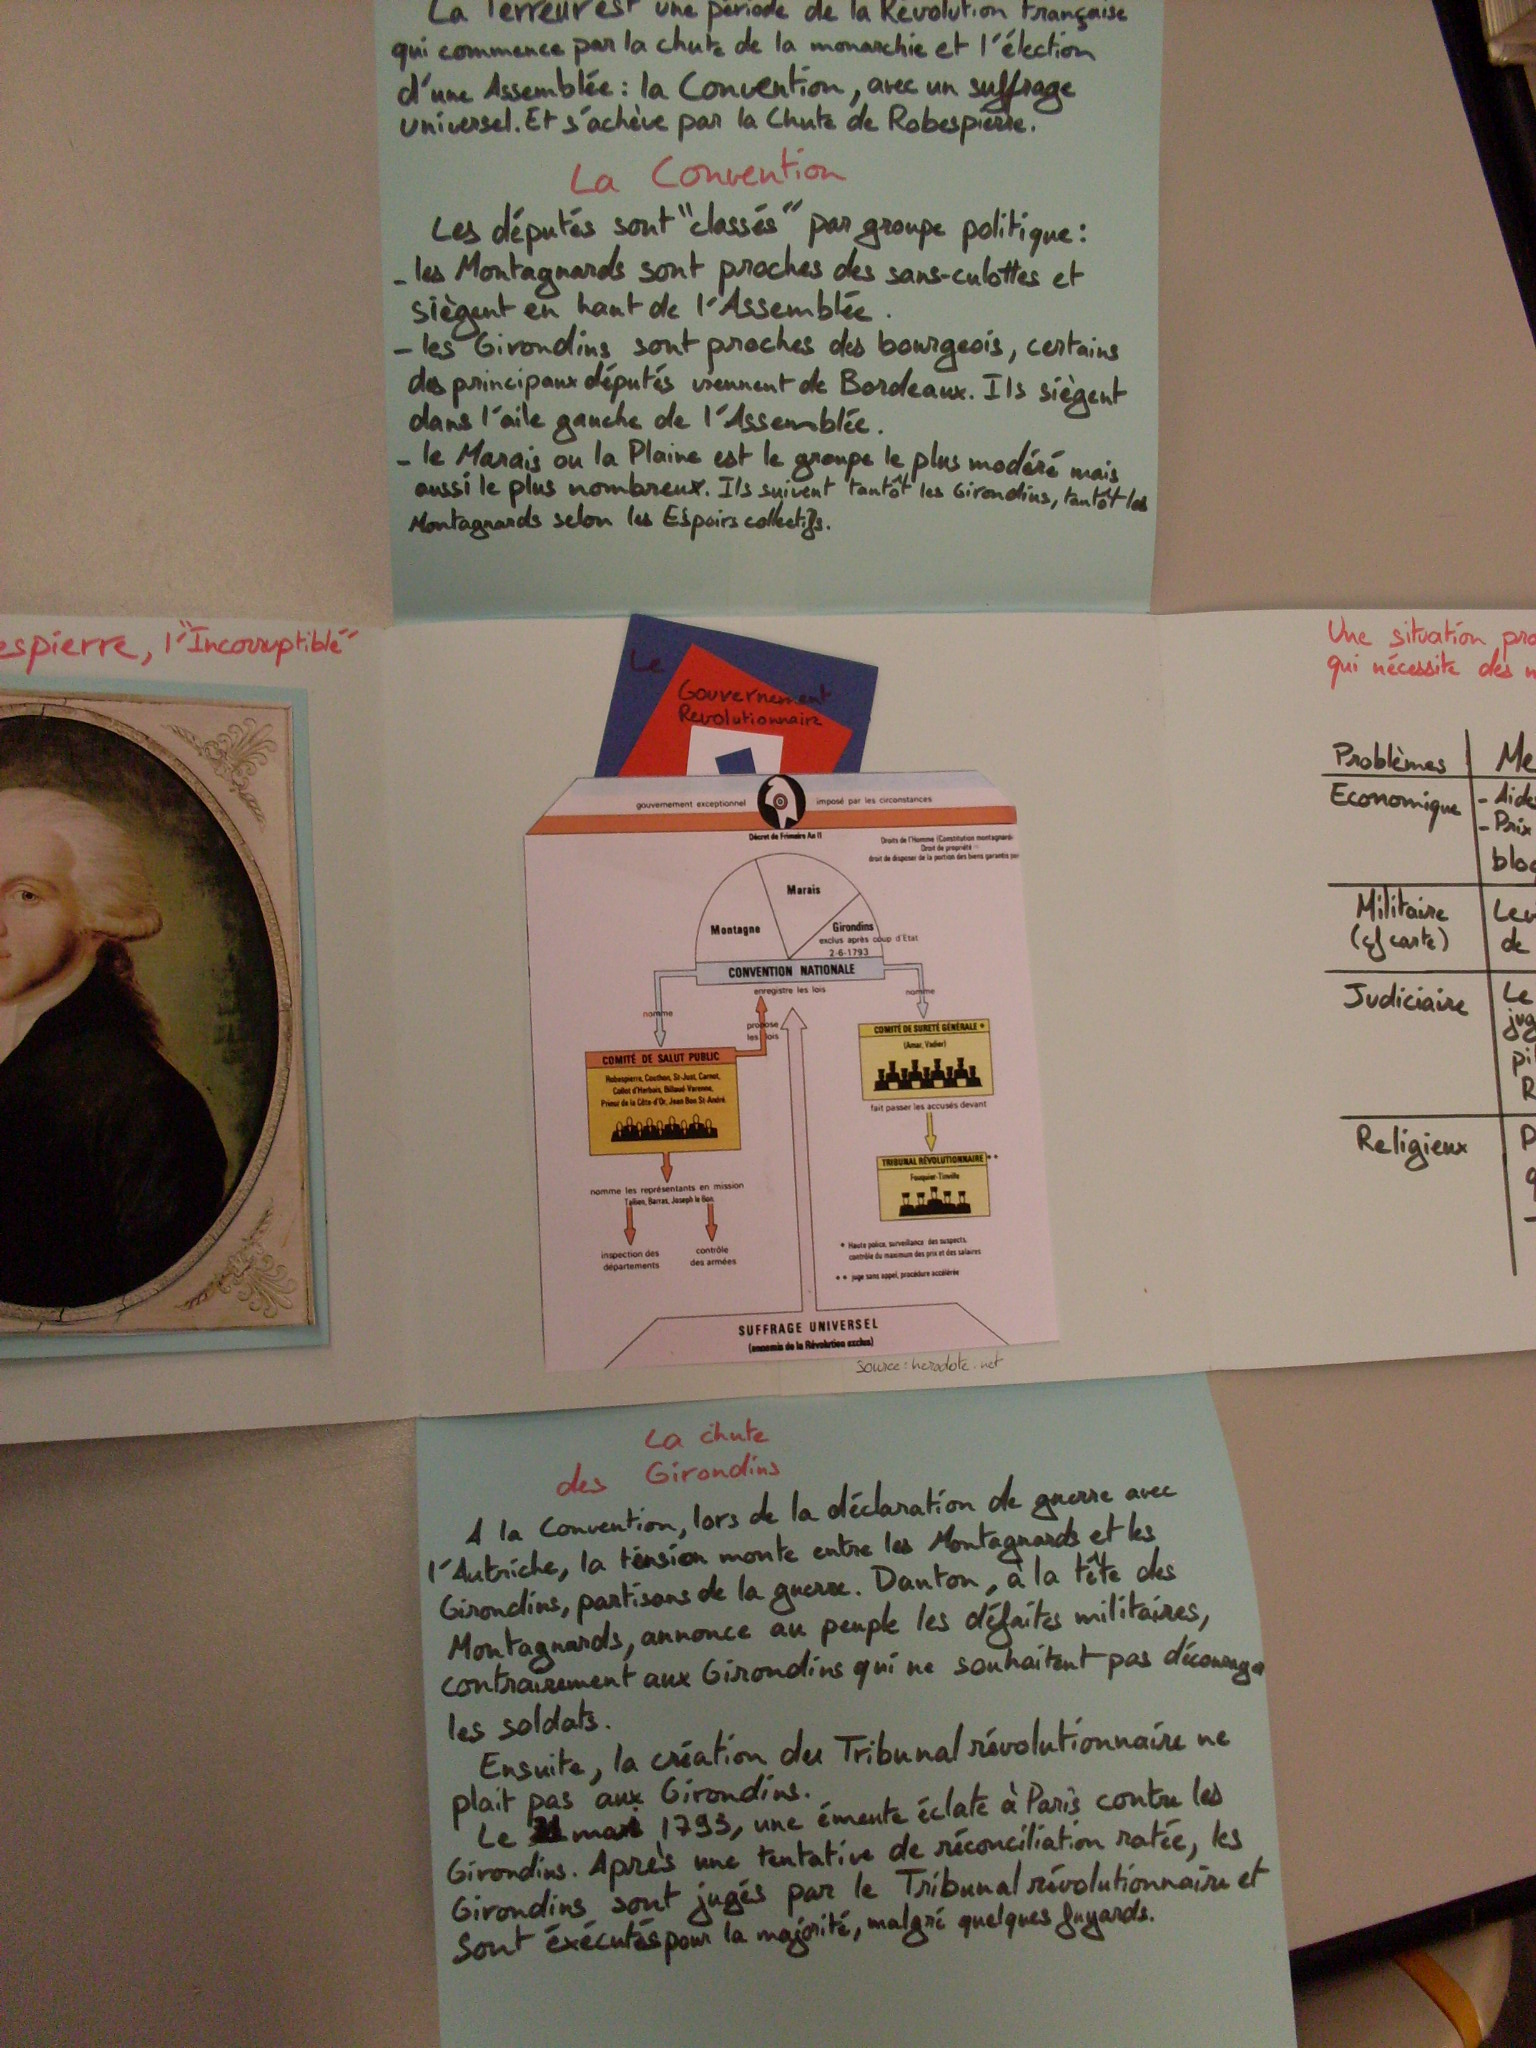 La Terreur est une période de la Révolution française
qui commence par la chute de la monarchie et l'élection
d'une Assemblée : la Convention, avec un suffrage
universel. Et s'achève par la Chute de Robespierre.
La Convention
Les députés sont "classés" par groupe politique :
- les Montagnards sont proches des sans-culottes et
siègent en haut de l'Assemblée.
- les Girondins sont proches des bourgeois, certains
des principaux députés viennent de Bordeaux. Ils siègent
dans l'aile gauche de l'Assemblée.
- le Marais ou la Plaine est le groupe le plus modéré mais
aussi le plus nombreux. Ils suivent tantôt les Girondins, tantôt les
Montagnards selon les Espoirs collectifs.
espierre, l'"Incorruptible"
Le
Gouvernement
Revolutionnaire
gouvernement exceptionnel imposé par les circonstances
Décret de Frimaire An II
Droits de l'Homme (Constitution montagnard
Droit de propriété
droit de disposer de la portion des biens garantis par
Montagne
Marais
Girondins
exclus après coup d'Etat
2-6-1793
CONVENTION NATIONALE
enregistre les lois
nomme
propose
les lois
nomme
COMITÉ DE SALUT PUBLIC
Robespierre, Couthon, St-Just, Carnot,
Collot d'Herbois, Billaud-Varenne,
Prieur de la Côte-d'Or, Jean Bon St-André.
nomme les représentants en mission
Tallien, Barras, Joseph le Bon.
inspection des
départements
contrôle
des armées
COMITÉ DE SURETÉ GÉNÉRALE *
(Amar, Vadier)
fait passer les accusés devant
TRIBUNAL RÉVOLUTIONNAIRE **
Fouquier-Tinville
* Haute police, surveillance des suspects,
contrôle du maximum des prix et des salaires
** juge sans appel, procédure accélérée
SUFFRAGE UNIVERSEL
(ennemis de la Révolution exclus)
source : herodote.net
Une situation pro
qui nécessite des m
Problèmes Me
Economique - Aide
- Prix
bloq
Militaire Lev
(cf carte) de
Judiciaire Le
jug
pi
R
Religieux P
q
-
La chute
des Girondins
A la Convention, lors de la déclaration de guerre avec
l'Autriche, la tension monte entre les Montagnards et les
Girondins, partisans de la guerre. Danton, à la tête des
Montagnards, annonce au peuple les défaites militaires,
contrairement aux Girondins qui ne souhaitent pas décourager
les soldats.
Ensuite, la création du Tribunal révolutionnaire ne
plait pas aux Girondins.
Le 31 mai 1793, une émeute éclate à Paris contre les
Girondins. Après une tentative de réconciliation ratée, les
Girondins sont jugés par le Tribunal révolutionnaire et
sont éxécutés pour la majorité, malgré quelques fuyards.